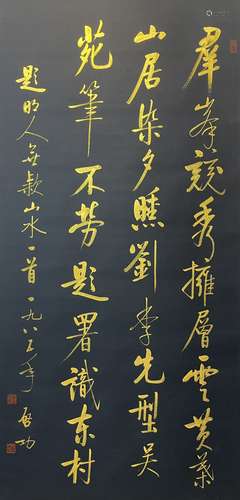 羣峯競秀擁層雲黄葉
山居染夕曛劉李先型吴
苑筆不劳題署識东村
題明人無款山水一首一九八五年 启功